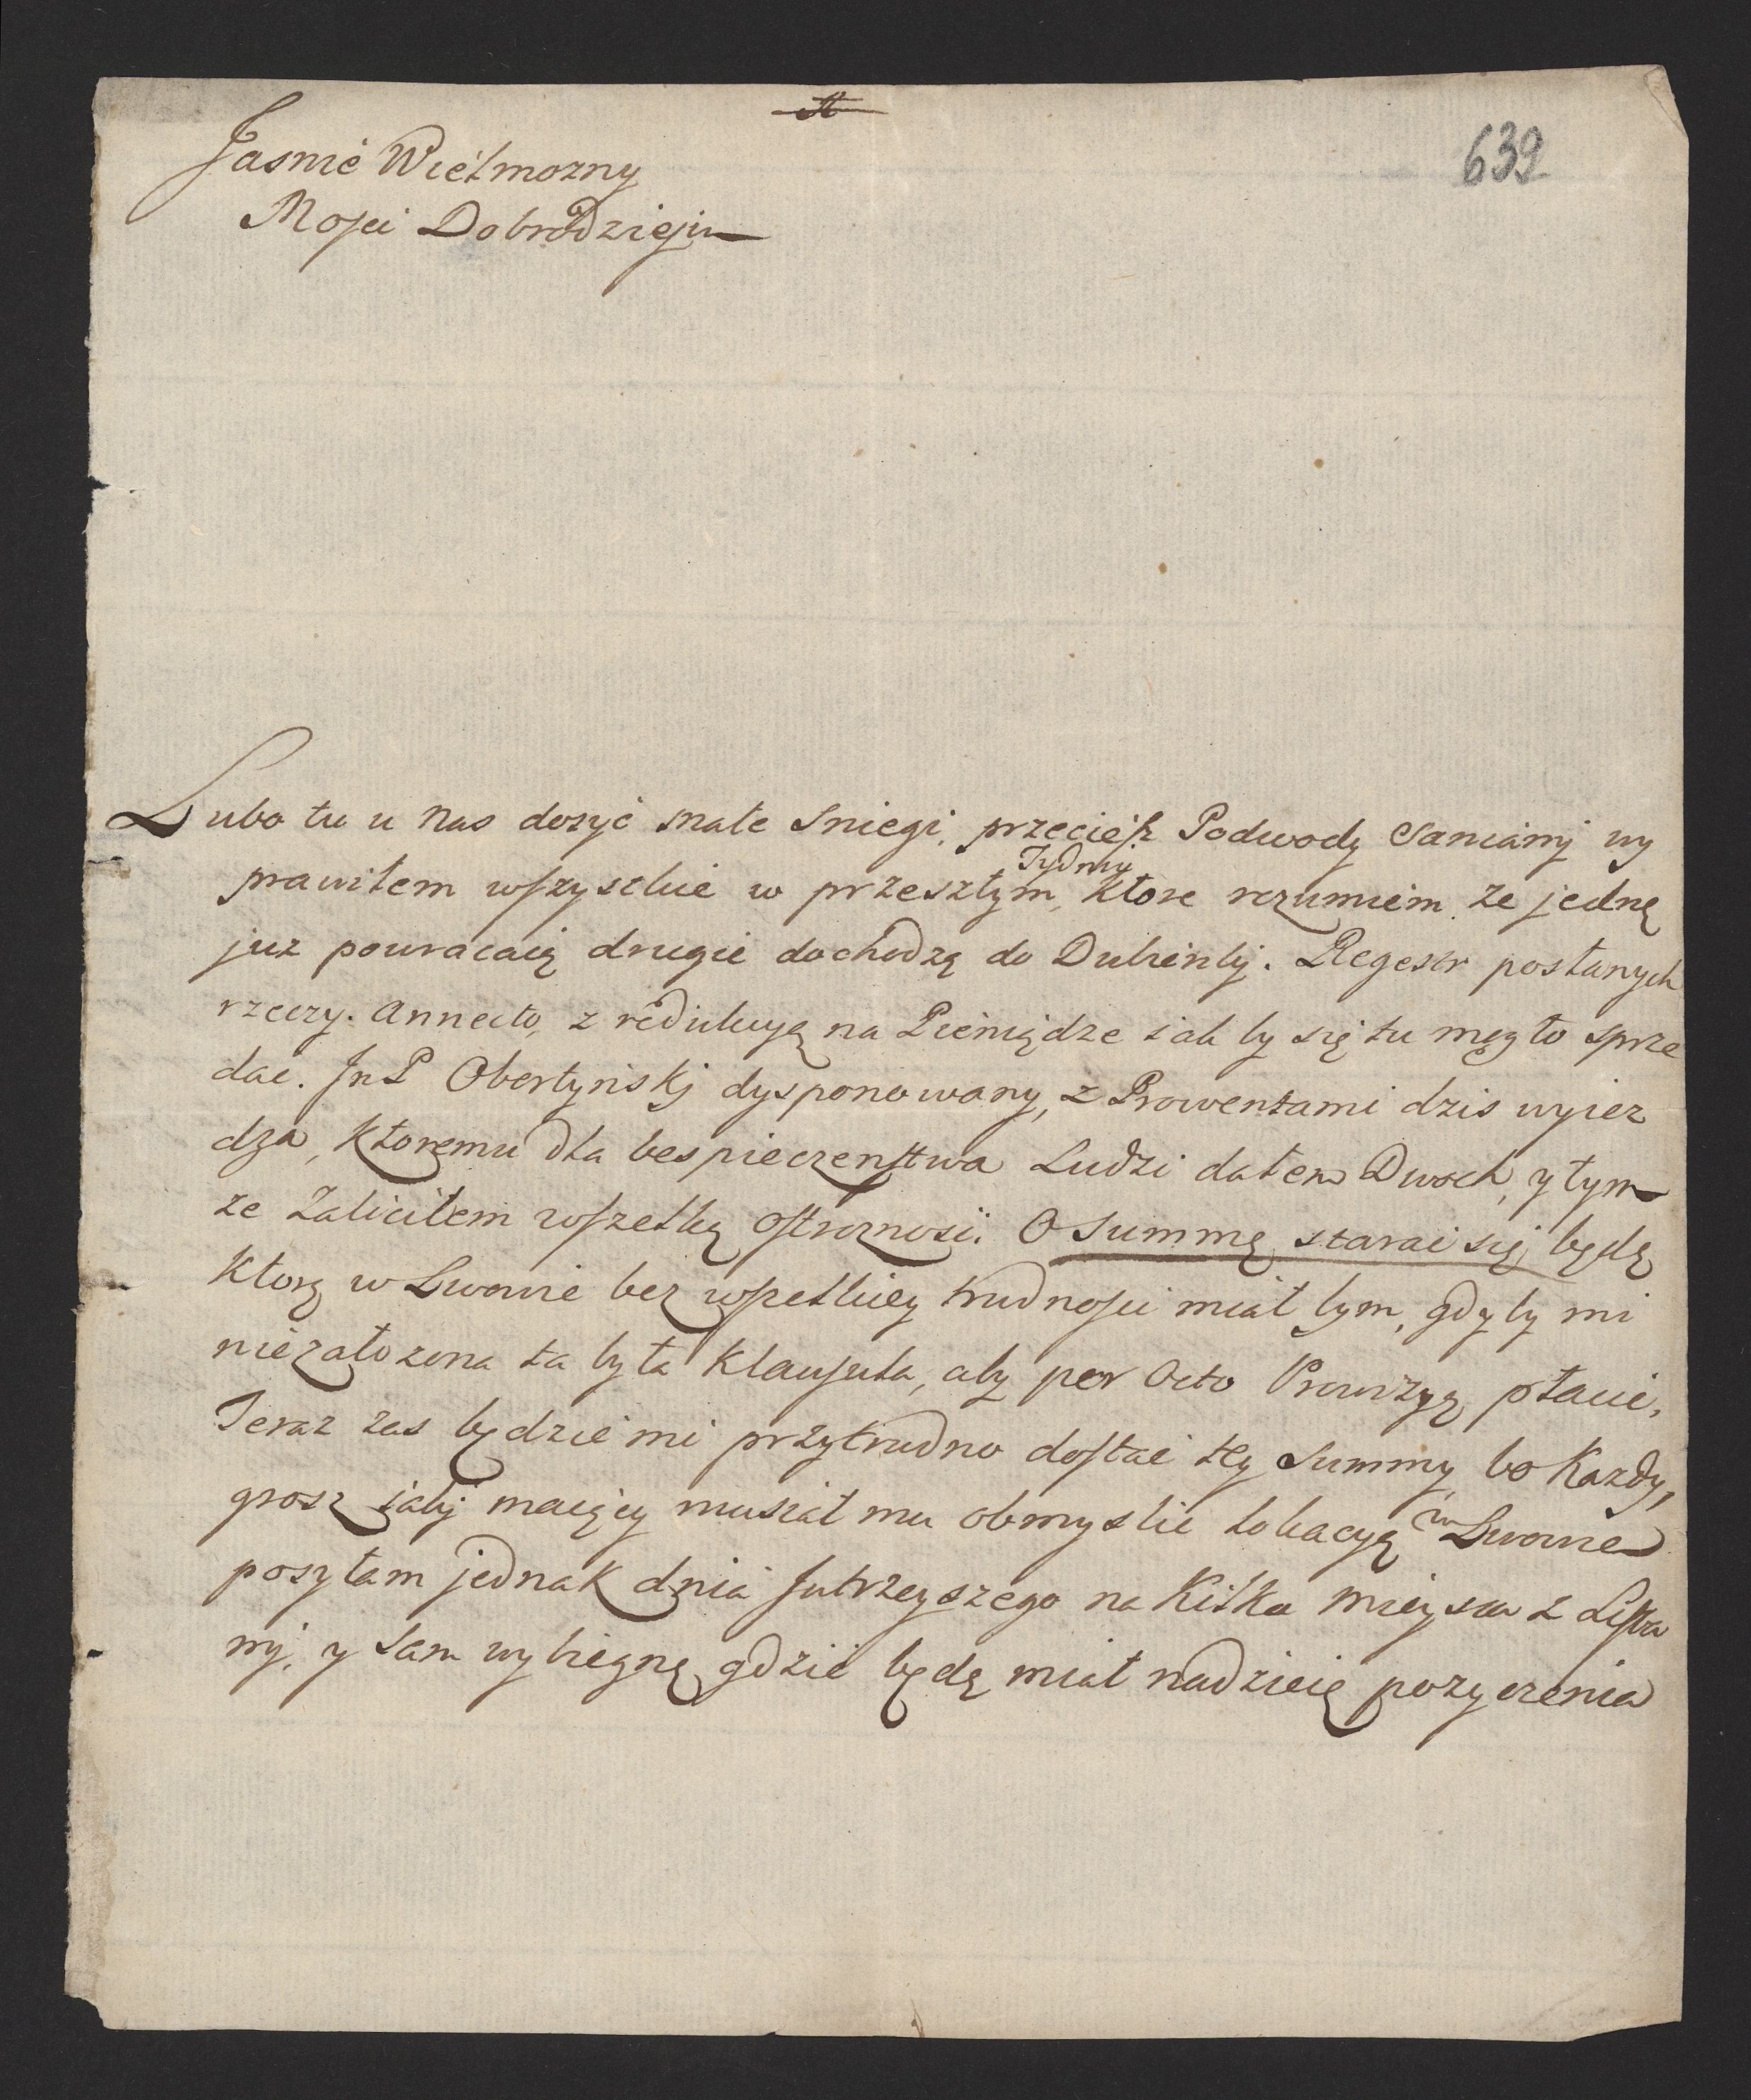 639
Jasnie Wielmozny
Mosci Dobrodzieju
Lubo tu u nas dosyć małe sniegi, przecieſz Podwody Saniamj wy
prawiłem wſzyſtkie w przeszłym Tydniu, ktore rozumiem ze jednę
juz powracaią drugie dochodzą do Dubienkj. Regestr posłanych
rzeczy. annecto, z redukcyą na Pieniądze iak by się tu mogło sprze
dac. ImP Obertyńskj dysponowany, z Prowentami dzis wyiez
dza, ktoremu dla bespieczenſtwa Ludzi dałem Dwoch, y tym
ze Zaliciłem wſzelką oſtroznosc. O Summę starac się będę
ktorą w Lwowie bez wſzelkiey trudnoſci miał bym, gdy by mi
niezałozona ta była Klauſula, aby per Octo Prowizyą płacic,
Teraz zas będzie mi przytrudno doſtac tey Summy, bo Kazdy,
grosz iakj maiący musiał mu obmyslic lokacyą w Lwowie
posyłam jednak dnia Jutrzeyszego na Kilka mieysca z Liſta
mj, y sam wybiegnę gdzie będę miał nadzieię pozyczenia